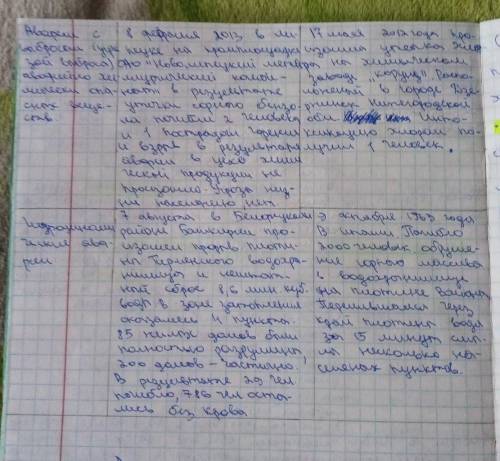 Аварии с
выбросом (угро
зой выброса)
аварийно хи
мически опа
сных веще-
ств.
8 февраля 2013 в ли
пецке на промплощадке
ОАО "Новолипецкий металлур
гический комби-
нат" в результате
утечки сырого бензо
ла погибли 2 человека
и 1 пострадал. Горения
и взрыва в результате
аварии в цехе хими
ческой продукции не
произошло. Угрозы жиз-
ни населению нет.
17 мая 2012 года про-
изошла утечка хло
ра на химическом
заводе "корунд", распо-
ложенный в городе Дзе
ржинск Нижегородской
обл. Инто-
ксикацию хлором по-
лучил 1 человек.
Гидродинами
ческие ава
рии
7 августа в Белорецком
районе Башкирии про-
изошел прорыв плоти-
ны Тирлянского водохра-
нилища и нештат-
ный сброс 8,6 млн куб.
воды в зоне затопления
оказались 4 пункта.
85 жилых домов были
полностью разрушены,
200 домов - частично,
В результате 29 чел
погибло, 786 чел оста
лись без крова
9 октября 1963 года
В Италии Погибло
2000 человек, обруше-
ние горного массива
в водохранилище
на плотине Вайонт
Перелившаяся через
край плотины вода
за 15 минут смы-
ла несколько на-
селеных пунктов.